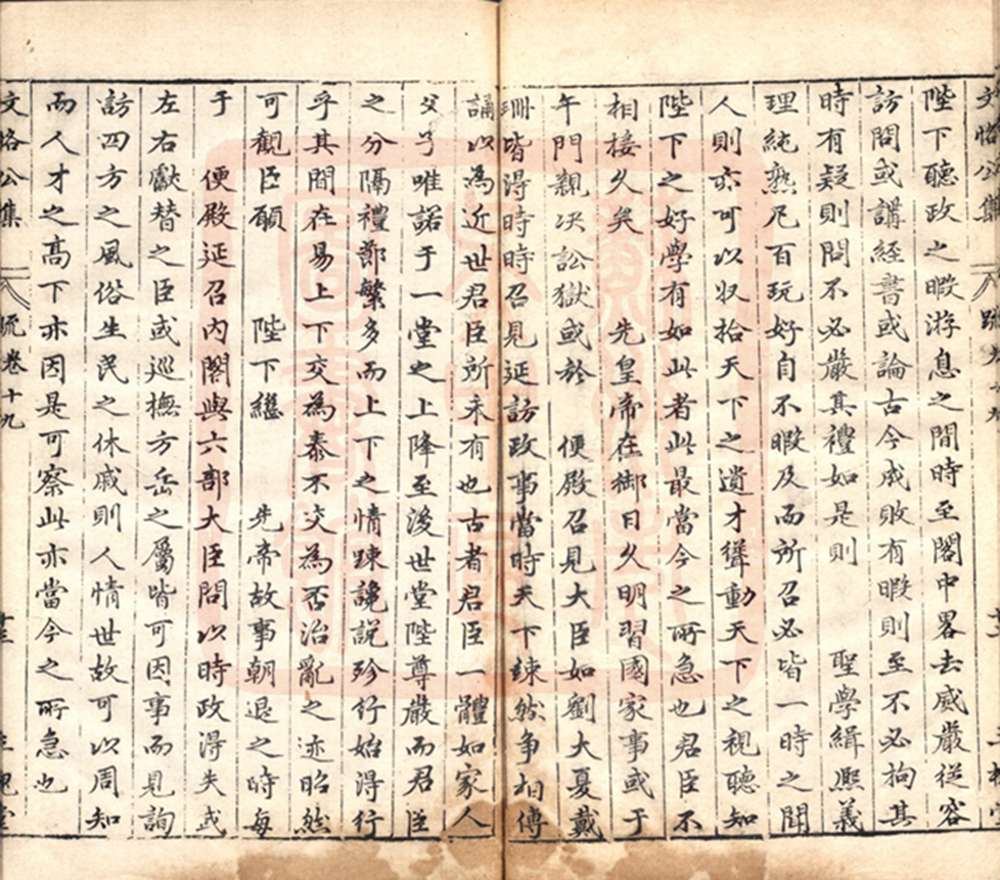 陛下聽政之暇游息之間時至閣中畧去威嚴從容
訪問或講經書或論古今成敗有暇則至不必拘其
時有疑則問不必嚴其禮如是則　聖學緝熙義
理純熟凡百玩好自不暇及而所召必皆一時之聞
人則亦可以收拾天下之遺才聳動天下之視聽知
陛下之好學有如此者此最當今之所急也君臣不
相接久矣　先皇帝在御日久明習國家事或于
午門親决訟獄或於　便殿召見大臣如劉大夏戴
珊皆得時時召見延訪政事當時天下竦然争相傳
誦以為近世君臣所未有也古者君臣一體如家人
父子唯諾于一堂之上降至後世堂陛尊嚴而君臣
之分隔禮節繁多而上下之情踈讒説殄行始得行
乎其間在易上下交為泰不交為否治亂之迹昭然
可觀臣願　陛下繼　先帝故事朝退之時每
于　便殿延召内閣與六部大臣問以時政得失或
左右獻替之臣或巡撫方岳之屬皆可因事而見詢
訪四方之風俗生民之休戚則人情世故可以周知
而人才之高下亦因是可察此亦當今之所急也
文恪公集　疏卷十九